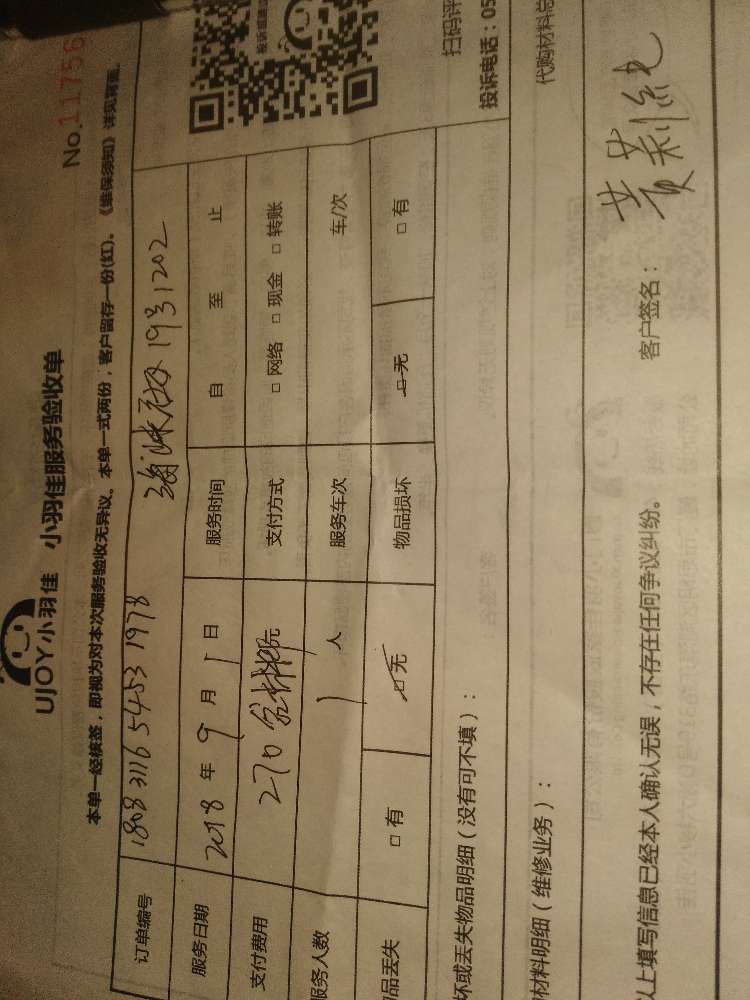 No.11756
UJOY小羽佳 小羽佳服务验收单
本单一经核签，即视为对本次服务验收无异议。本单一式两份，客户留存一份(红)。《维保须知》详见背面。
订单编号 1808 3116 5453 1978 1931202
服务日期 2018 年 9 月 1 日 服务时间 自 至 止
支付费用 270 元 支付方式 □ 网络 □ 现金 □ 转账
服务人数 1 人 服务车次 车/次
品丢失 □ 有 □ 无 物品损坏 □ 无 □ 有
扫码评
投诉电话：05
坏或丢失物品明细（没有可不填）：
材料明细（维修业务）： 代购材料总
以上填写信息已经本人确认无误，不存在任何争议纠纷。 客户签名： 黄莉纯